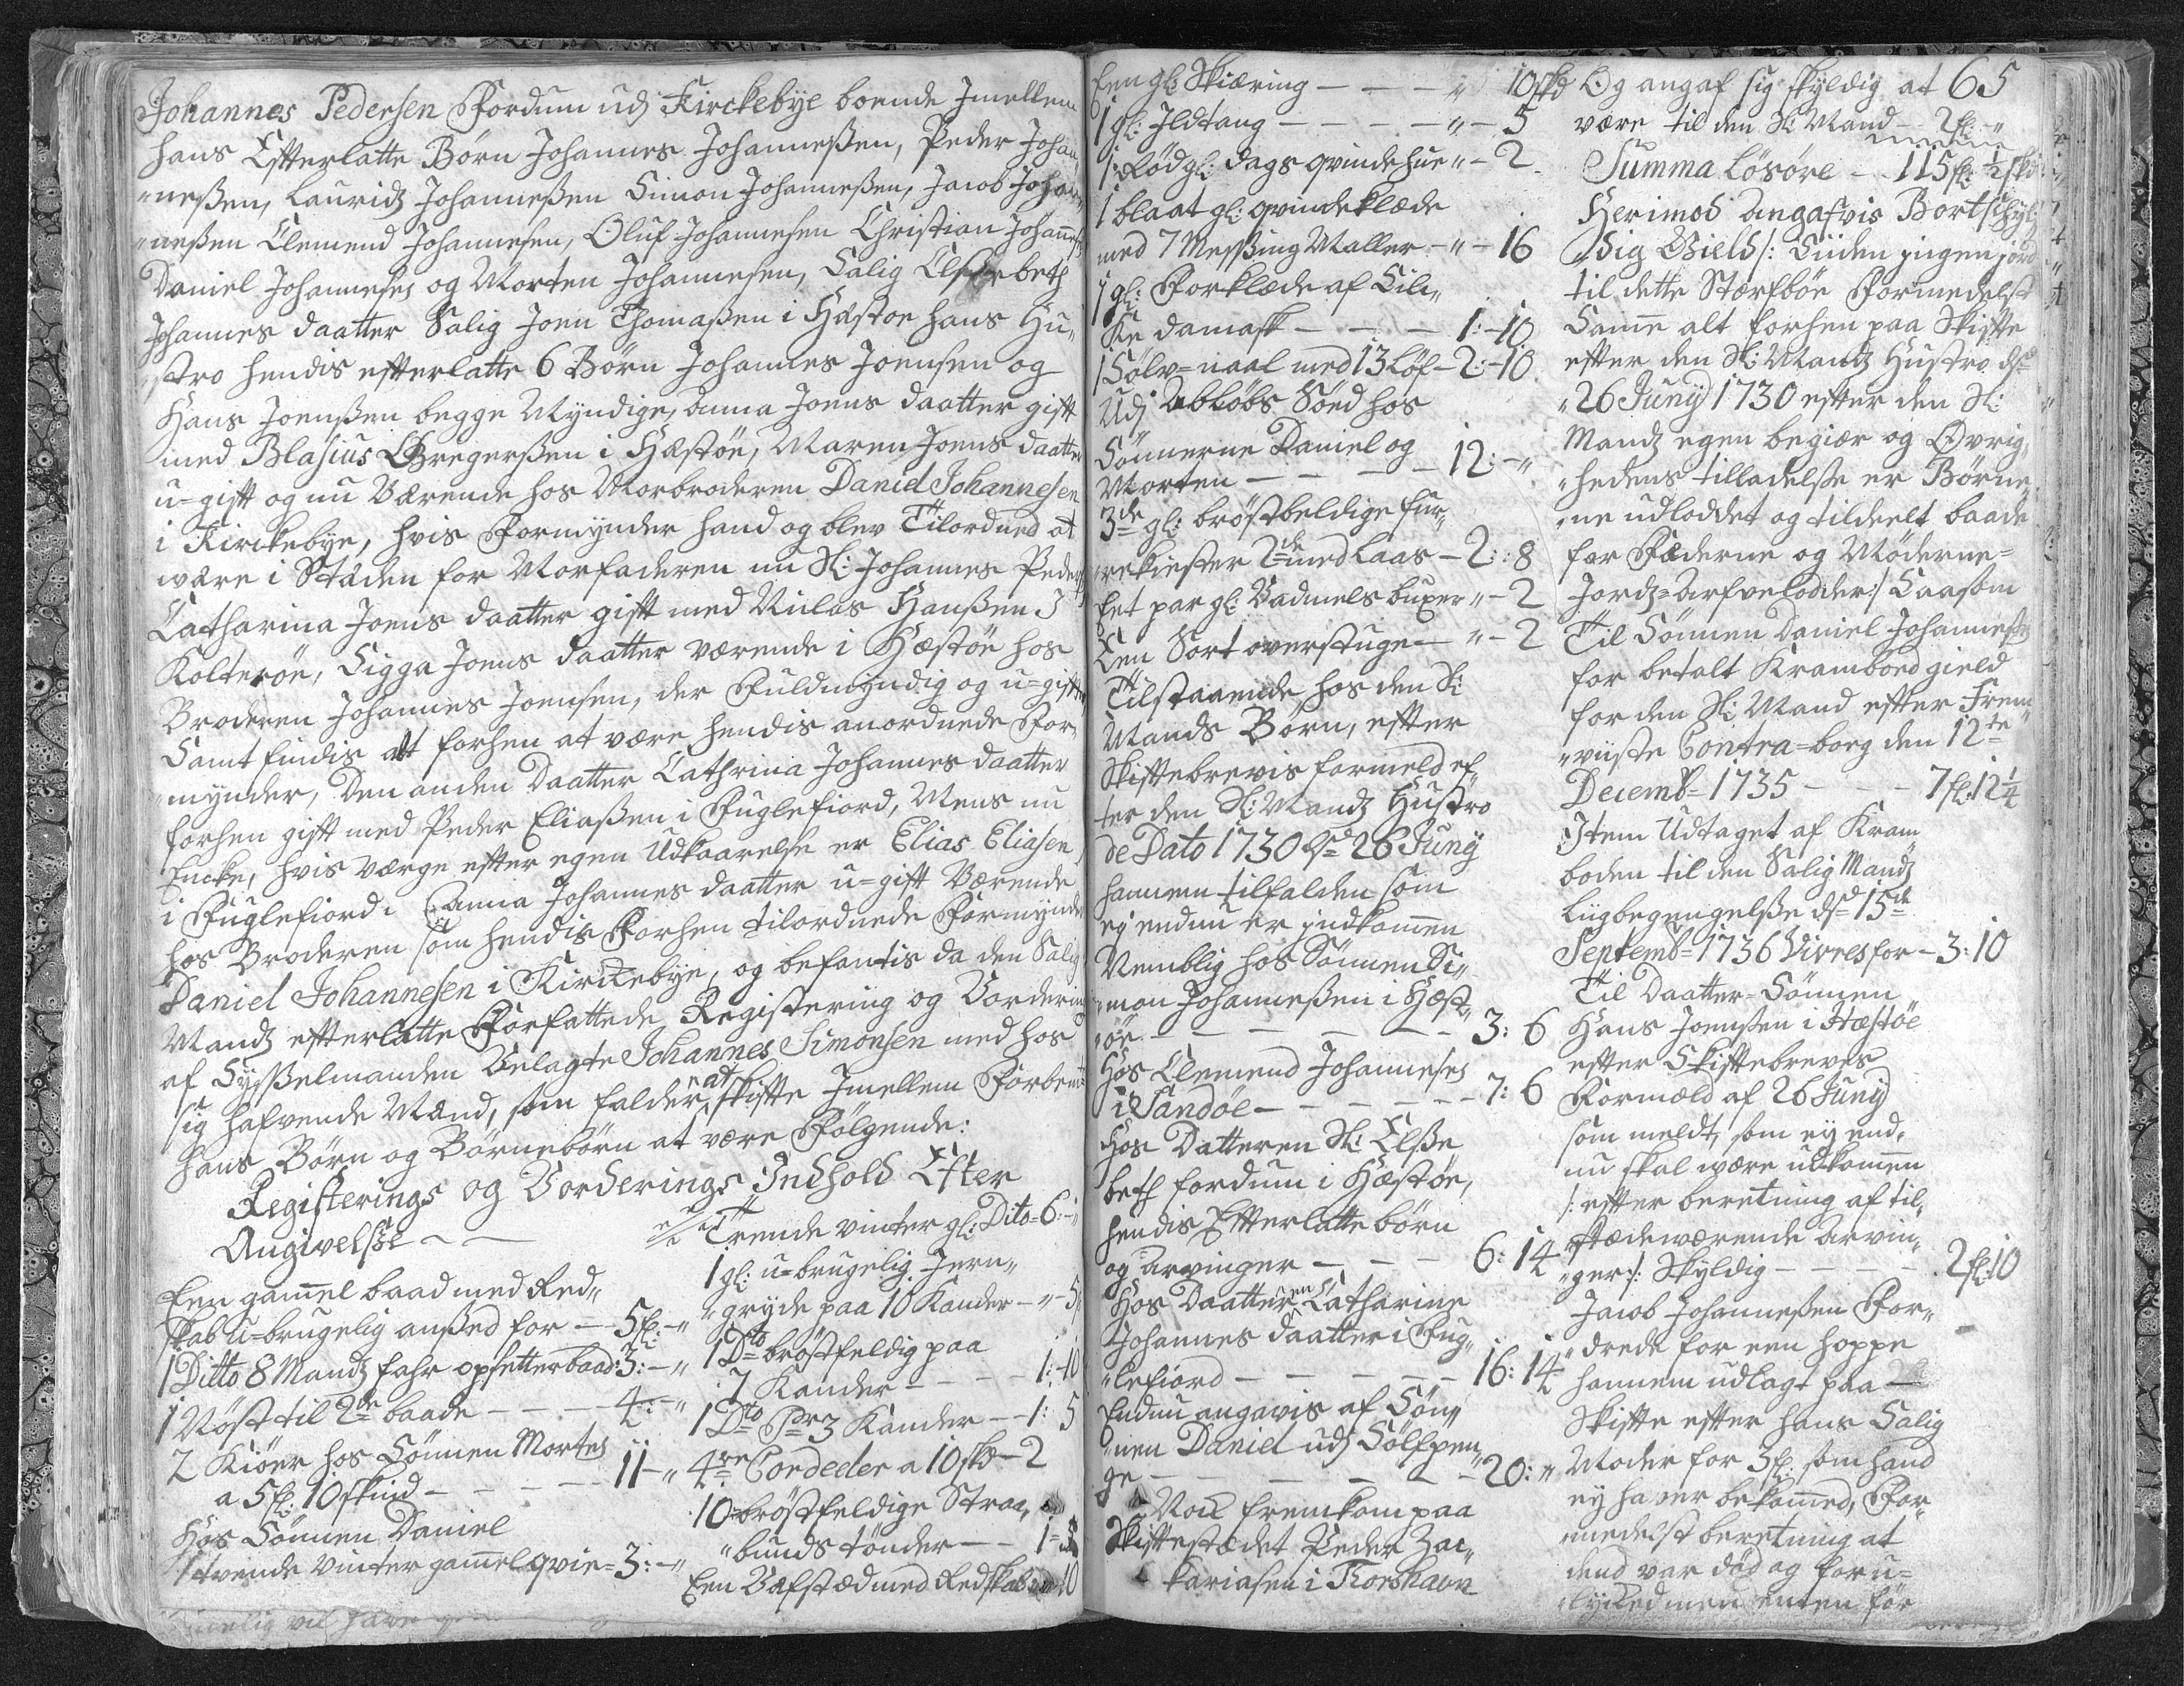 Johannes Pedersen Fordum udj Kirckebÿe boende Jmellem
hans Efterlatte Børn Johannes Johanneßen, Peder Johan„
„neßen, Lauridz Johanneßen Simon Johanneßen, Jacob Johan„
„neßen Clemend Johannesen, Oluf Johannesen Christian Johanneß:
Daniel Johannesen og Morten Johannesen, Salig Elsebeth
Johannes daatter Salig Joen Thomaßen i Hæstøe hans Hu„
„stro hendis efterlatte 6 Børn Johannes Joensen og
Hans Joenßen begge Mÿndige, Anna Joens daatter gift
med Blasius Gregerßen i Hæstøe, Maren Joens daatter
u=gift og nu Værende hos Morbroderen Daniel Johannesen
i Kirckebÿe, hvis Formÿnder hand og blev Tilordned at
være i Stæden for Morfaderen nu Sl: Johannes Peders:
Catharina Joens daatter gift med Niclas Hanßen J
Kolterøe, Sigga Joens daatter værende i Hæstøe hos
Broderen Johannes Joensen, der Fuldmÿndig og u=gift
Samt findis alt forhen at være hendis anordnede For„
„mÿnder, Den anden Daatter Cathrina Johannes daatter
forhen gift med Peder Eliaßen i Fuglefiord, Mens nu
Encke, hvis Værge efter egen Udkaarelse er Elias Eliasen
i Fuglefiord. Anna Johannes daatter u=gift Værende
hos Broderen som hendis Forhen tilordnede Formÿnder
Daniel Johannesen i Kirckebÿe, og befantis da den Salig
Mandz efterlatte Forfattede Registering og Vordering
af Sÿßelmanden Velagte Johannes Simonsen med hos
sig hafvende Mænd, som falder at skifte Jmellem Forbemt
hans Børn og Børnebørn at være Følgende:
Registerings og Vorderings Indhold Efter
Angivelße
Een gamel baad med Red„
skab u=brugelig anßed for — 5fl: „
1 Ditto 8 Mandz fahr opsetterbaad 3: — „
1 Nøst til 2de baade — — — 4: — „
2 Kiøer hos Sönnen Morten
a 5fl: 10 skind — — — — 11 — „
Hos Sönnen Daniel
1 tvende vinter gamel qvie = 3: — „
Trende vinter gl: Dito = 6: — „
1 gl: u=brugelig Jern„
„grÿde paa 10 Kander — „ — 5
1 Dto brøstfeldig paa
7 Kander — — — 1: 10
1 Dto Pr 3 Kander — — 1: 5
4re Cordeeler a 10 skd — 2
10 brøstfeldige Straa„
„bunds tønder — — 1 =
Een Vefstæd med Redskab 10
Een gl: Skiæring — — — „ 10 skd
1 gl: Jldtang — — — — „ — 5
1 Rød gl: dags qvindehue „ — 2
1 blaat gl: qvindeklæde
med 7 Meßing Maller — „ — 16
1 gl: Forklæde af Sil„
Ke damask — — — 1: — 10
1 Sølv=naal med 13 Løf — 2: — 10
Udj Abløbs Sæd hos
Sönnerne Daniel og
Morten — — — — 12: — „
3de gl: brøstbeldige fur„
rekiester 2de med Laas — 2: : 8
Eet par gl: Vadmels buxer „ — 2
Een Sort overstuge — „ — 2
Tilstaaende hos den Sl:
Mands Børn, efter
Skiftebrevis formeld ef„
ter den Sl: Mandz Hustro
de Dato 1730 d: 26 Junÿ
hannem tilfalden som
eÿ endnu er jndkomen
Nemblig hos Sønnen Si„
„mon Johanneßen i Hæst„
„øe — — — — — — 3: 6
Hos Clemend Johannesen
i Sandøe — — — — — 7: 6
Hos Datteren Sl: Elße„
beth fordum i Hæstøe,
hendis Efterlatte børn
og Arvinger — — — 6: 14
Hos Daatteren Catharine
Johannes daatter i Fug„
„lefiord — — — — — 16: 14
Endnu angavis af Søn„
„nen Daniel udj Sølfpen„
ge — — — — — — 20: „
Nock fremkom paa
Skiftestædet Peder Zac„
kariasen i Thorshavn
Og angaf sig skÿldig at 65
være til den Sl: Mand — 2fl: „
Summa Løsøre — 115fl: ½skd
Herimod angafvis Bortschÿl„
dig Gield /: Siiden jngen jord
til dette Stærfböe Formedelst
Same alt forhen paa Skifte
efter den Sl: Mandz Hustro ds
„26 Junÿ 1730 efter den Sl:
Mandz egen begiær og Øvrig„
„hedens tilladelße er Børne„
„ne udloddet og tildeelt baade
for Fæderne og Møderne=
Jordz=Arfvelodder :/ Saasom
Til Sönnen Daniel Johannesen
for betalt Kramboed gield
for den Sl: Mand efter Frem„
„viiste Contra=borg den 12te
Decembr 1735 — — — 7fl: 12¼
Jtem Udtaget af Kram
boden til den Salig Mandz
Liigbegengelße ds 15de
Septembr 1736 Vivres for — 3: 10
Til Daatter=Sönnen
Hans Joenßen i Hæstøe
efter Skiftebrevets
Formæld af 26 Junÿ
som meldt, som eÿ end„
nu skal være udkomen
/: efter beretning af til„
„stædeværende Arvin„
„ger :/ Skÿldig — — — — 2fl: 10
Jacob Johanneßen For„
„drede for een hoppe
hannem udlagt paa —
Skifte efter hans Salig
Moder for 5fl: som hand
eÿ haver bekomed, For„
„medelst beretning at
dend var død og foru=
„lÿcked men enten før